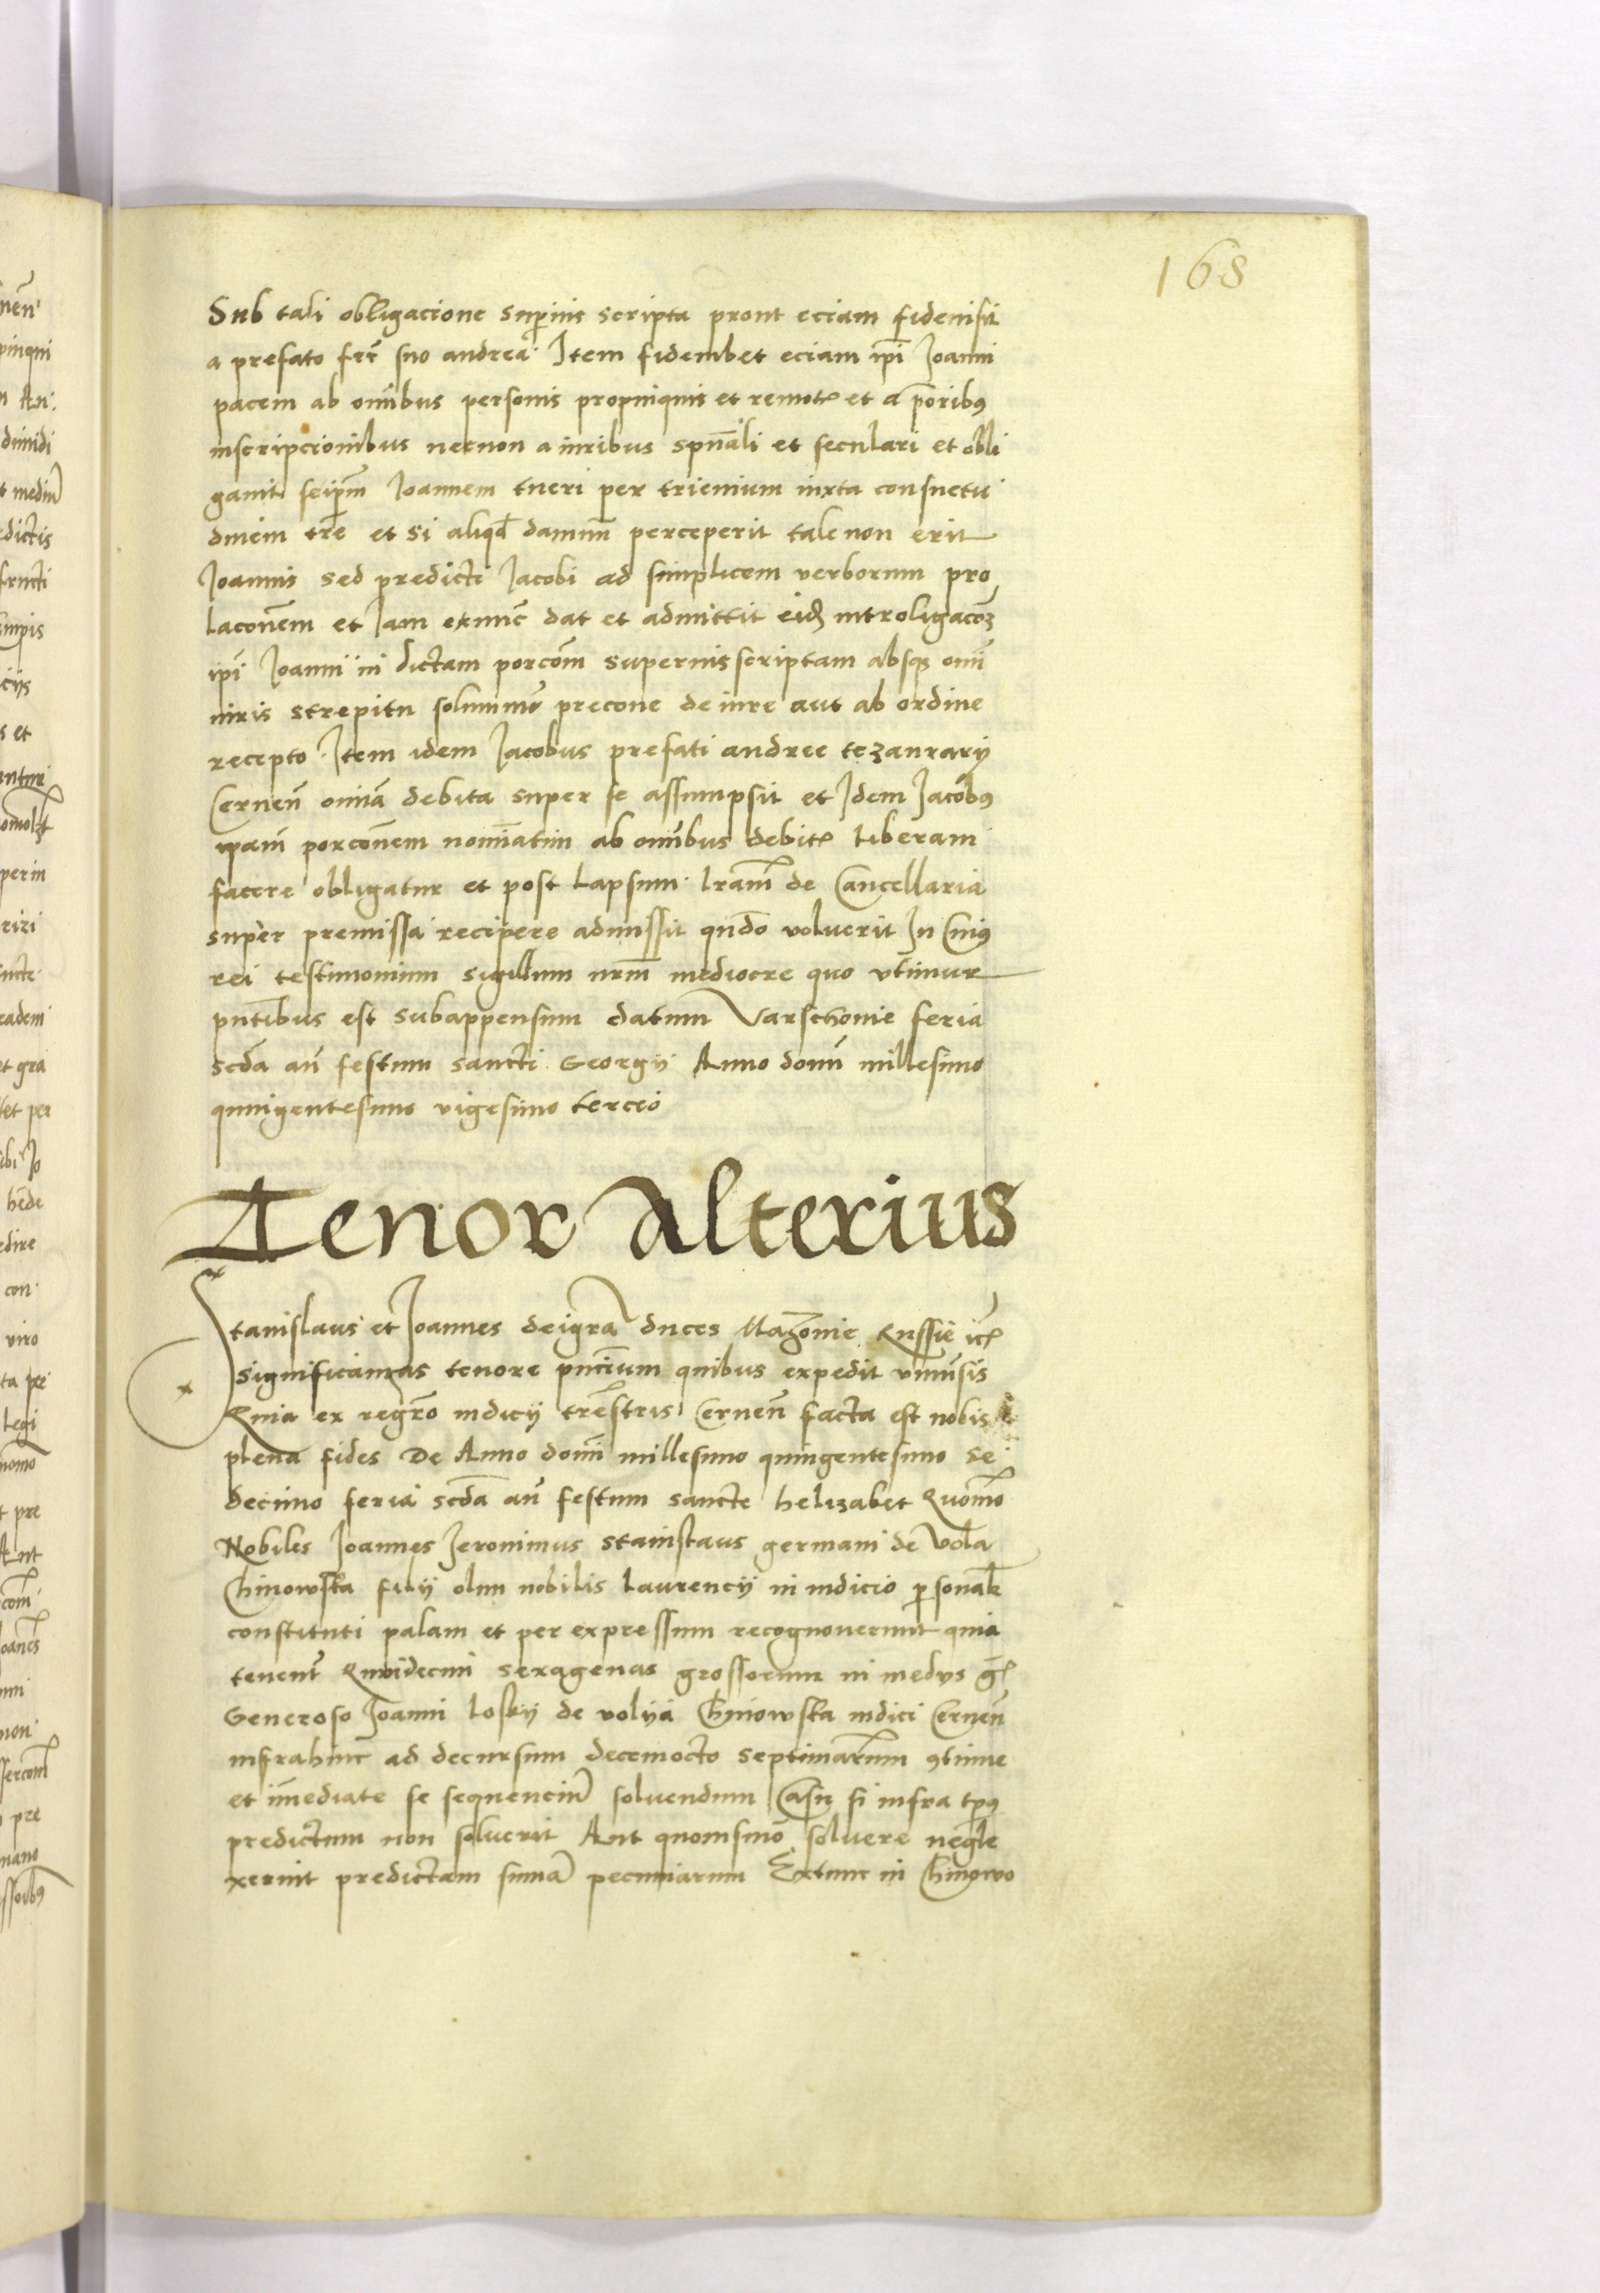 168
Sub tali obligacione superius scripta prout eciam fideiusit
a prefato frē suo andrea Item fideiubet eciam ipī Ioanni
pacem ab omībus personis propinquis et remotis et a prioribus
inscripcionibus necnon a iuribus spūali et seculari et obli
gauit seipm̄ Ioannem tueri per trienium iuxta consuetu
dinem trē et si aliqd̄ damnum perceperit tale non erit
Ioannis sed predicti Iacobi ad simplicem verborum pro
lacōnem et Iam extunc dat et admittit eidē introligacōem
ipī Ioanni in dictam porcōnem superius scriptam absque omī
iuris strepitu solummō precone de iure aut ab ordine
recepto Item idem Iacobus prefati andree tezaurarij
Cernen̄ omīa debita super se assumpsit et Idem Iacobus
ipam̄ porcōnem nomīatim ab omībus debitis liberam
facere obligatur et post lapsum lrām de Cancellaria
super premissa recipere admissit quādo voluerit In Cuius
rei testimonium sigillum nrm̄ mediocre quo vtimur
pn̄tibus est subappensum datum Varschouie feria
scdā an̄ festum sancti Georgij Anno domī millesimo
quingentesimo vigesimo tercio
Tenor Alterius
Stanislaus et Ioannes dei grā duces Mazouie Russie etc
significamus tenore pn̄cium quibus expedit vniuersis
Quia ex regrō iudicij trēstris Cernen̄ facta est nobis
plena fides De Anno domī millesimo quingentesimo se
decimo feria scdā an̄ festum sancte helizabet Quomō
Nobiles Ioannes Ieronimus Stanislaus germani de Vola
Chinowska filij olim nobilis Laurencij in iudicio personalr̄
constituti palam et per expressum recognouerunt quia
tenent Quindecim sexagenas grossorum in medys gr̄
Generoso Ioanni Loskij de volya Chinowska iudici Cernen̄
infrahinc ad decursum decemocto septimanarum 9tinue
et immediate se sequencium soluendum Casu si infra tps
predictum non soluerit Aut quouismō soluere negle
xerint predictam sumā pecuniarum Extunc in Chinowo